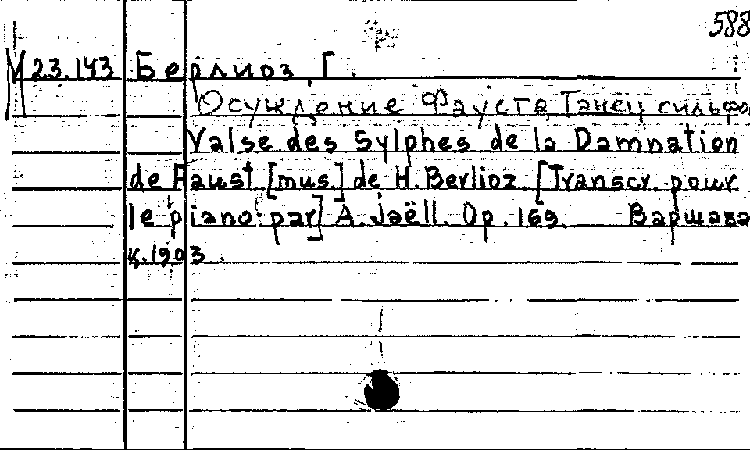 588
М 23.143 Берлиоз, Г.
Осуждение Фауста. Танец сильфо
Valse des Sylphes de la Damnation
de Faust [mus.] de H. Berlioz. [Transcr. pour
le piano par] A. Jaëll. Op. 169. Варшава
ц. 1903.